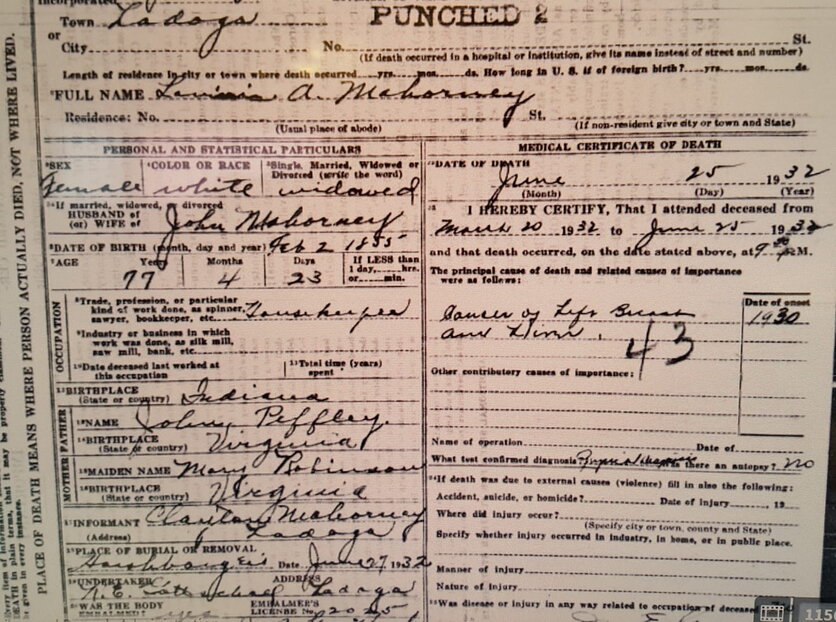 Town Ladoga
PUNCHED 2
or
City No. St.
(If death occurred in a hospital or institution, give its name instead of street and number)
Length of residence in city or town where death occurred yrs. mos. ds. How long in U. S. if of foreign birth? yrs. mos. ds.
FULL NAME A. Mahorney
Residence: No. St.
(Usual place of abode) (If non-resident give city or town and State)
PERSONAL AND STATISTICAL PARTICULARS
SEX
Female
COLOR OR RACE
white
Single, Married, Widowed or
Divorced (write the word)
widowed
If married, widowed, or divorced
HUSBAND of
(or) WIFE of John Mahorney
DATE OF BIRTH (month, day and year) Feb 2 1855
AGE Years Months Days If LESS than
1 day, hrs.
or min.
77 4 23
OCCUPATION
Trade, profession, or particular
kind of work done, as spinner,
sawyer, bookkeeper, etc. Housekeeper
Industry or business in which
work was done, as silk mill,
saw mill, bank, etc.
Date deceased last worked at
this occupation
Total time (years)
spent
BIRTHPLACE
(State or country) Indiana
FATHER
NAME John Peffley
BIRTHPLACE
(State or country) Virginia
MOTHER
MAIDEN NAME Mary Robinson
BIRTHPLACE
(State or country) Virginia
INFORMANT Mahorney
(Address) Ladoga
PLACE OF BURIAL OR REMOVAL
Date June 27, 1932
UNDERTAKER ADDRESS
Ladoga
WAS THE BODY
EMBALMED? yes
EMBALMER'S
LICENSE No. 2025
MEDICAL CERTIFICATE OF DEATH
DATE OF DEATH
June 25 1932
(Month) (Day) (Year)
I HEREBY CERTIFY, That I attended deceased from
March 20 1932 to June 25 1932
and that death occurred, on the date stated above, at 9 M.
The principal cause of death and related causes of importance
were as follows:
Date of onset
Cancer of Left Breast 1930
and Liver.
43
Other contributory causes of importance:
Name of operation Date of
What test confirmed diagnosis? Was there an autopsy? no
If death was due to external causes (violence) fill in also the following:
Accident, suicide, or homicide? Date of injury , 19
Where did injury occur?
(Specify city or town, county and State)
Specify whether injury occurred in industry, in home, or in public place.
Manner of injury
Nature of injury
Was disease or injury in any way related to occupation of deceased
PLACE OF DEATH MEANS WHERE PERSON ACTUALLY DIED, NOT WHERE LIVED.
DEATH in plain terms, that it may be properly